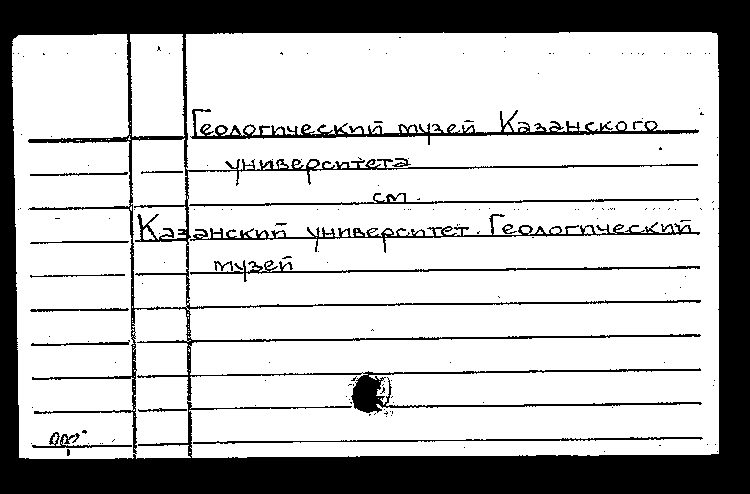 Геологический музей Казанского
университета
см.
Казанский университет. Геологический
музей